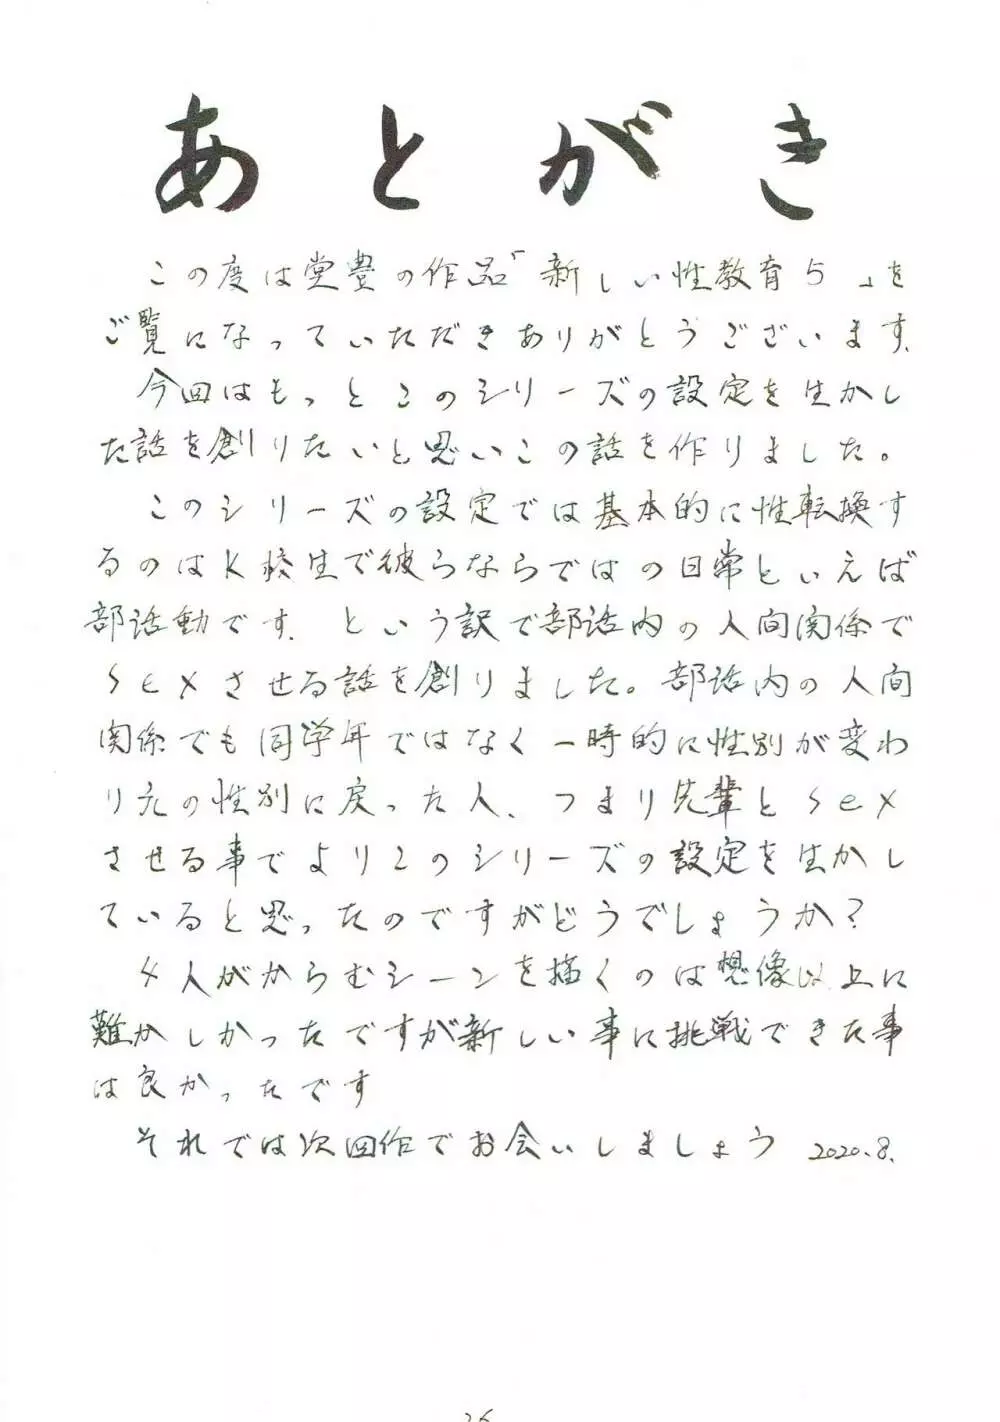 あとがき
この度は堂豊の作品「新しい性教育5」を
ご覧になっていただきありがとうございます.
今回はもっとこのシリーズの設定を生かし
た話を創りたいと思いこの話を作りました。
このシリーズの設定では基本的に性転換す
るのはK校生で彼らならではの日常といえば
部活動です. という訳で部活内の人間関係で
sexさせる話を創りました。部活内の人間
関係でも同学年ではなく一時的に性別が変わ
り元の性別に戻った人、つまり先輩とsex
させる事でよりこのシリーズの設定を生かし
ていると思ったのですがどうでしょうか?
4人がからむシーンを描くのは想像以上に
難かしかったですが新しい事に挑戦できた事
は良かったです
それでは次回作でお会いしましょう 2020.8.